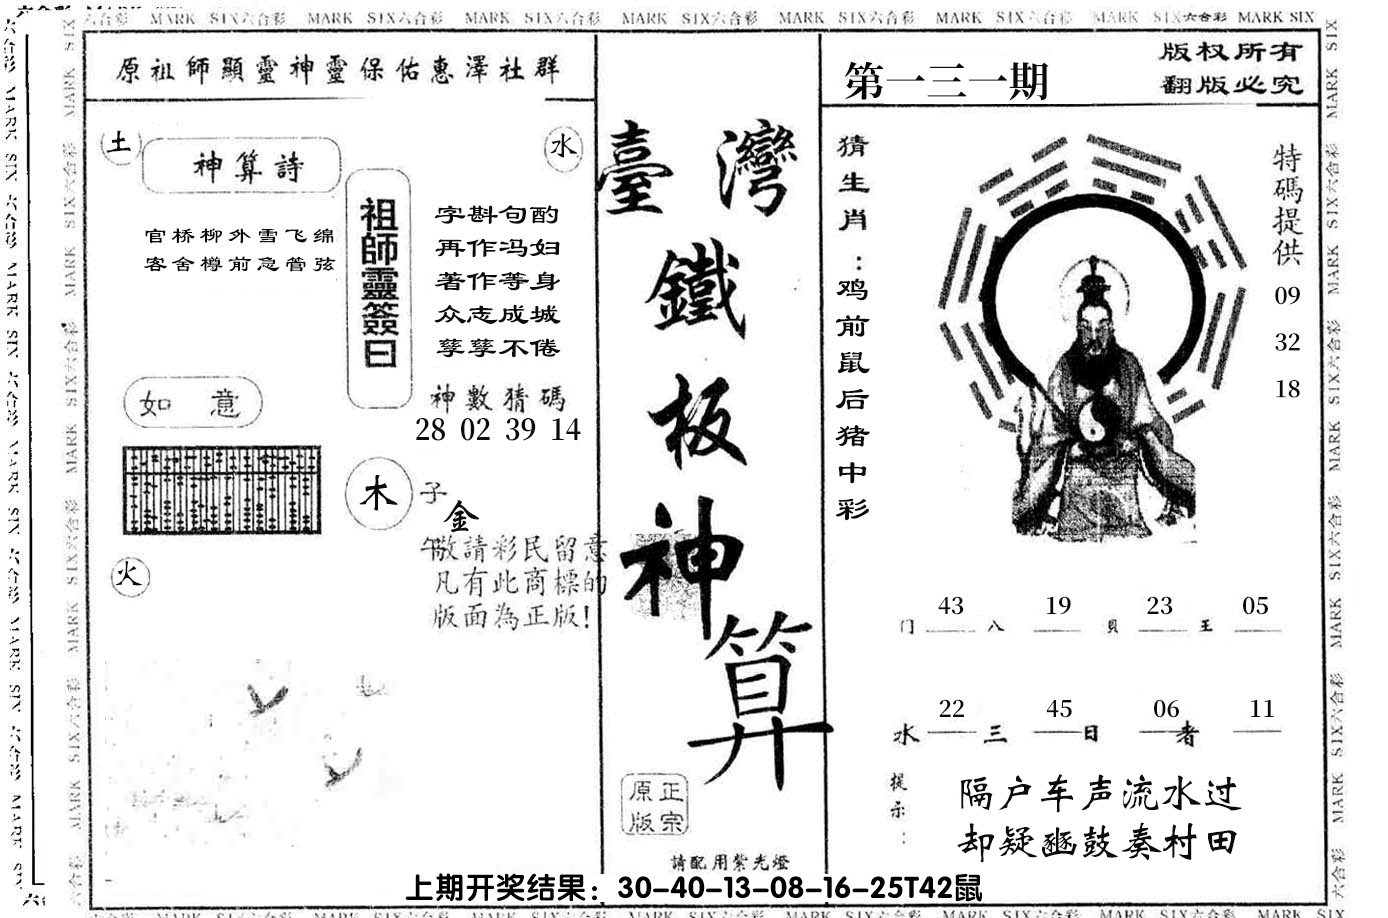 MARK SIX六合彩 MARK SIX六合彩 MARK SIX六合彩 MARK SIX六合彩 MARK SIX六合彩 MARK SIX六合彩 MARK SIX六合彩 MARK SIX
原祖師顯靈神靈保佑惠澤社群
土
神算詩
水
官桥柳外雪飞绵
客舍樽前急管弦
祖師靈簽曰
字斟句酌
再作冯妇
著作等身
众志成城
孳孳不倦
神數猜碼
28 02 39 14
如 意
木
子
金
午
火
敬請彩民留意
凡有此商標的
版面為正版!
臺灣
鐵
板
神
算
正宗
原版
請配用紫光燈
第一三一期
版权所有
翻版必究
猜生肖：鸡前鼠后猪中彩
特碼提供
09
32
18
43 19 23 05
门 八 貝 王
22 45 06 11
水 三 日 者
提示：
隔户车声流水过
却疑豳鼓奏村田
上期开奖结果：30-40-13-08-16-25T42鼠